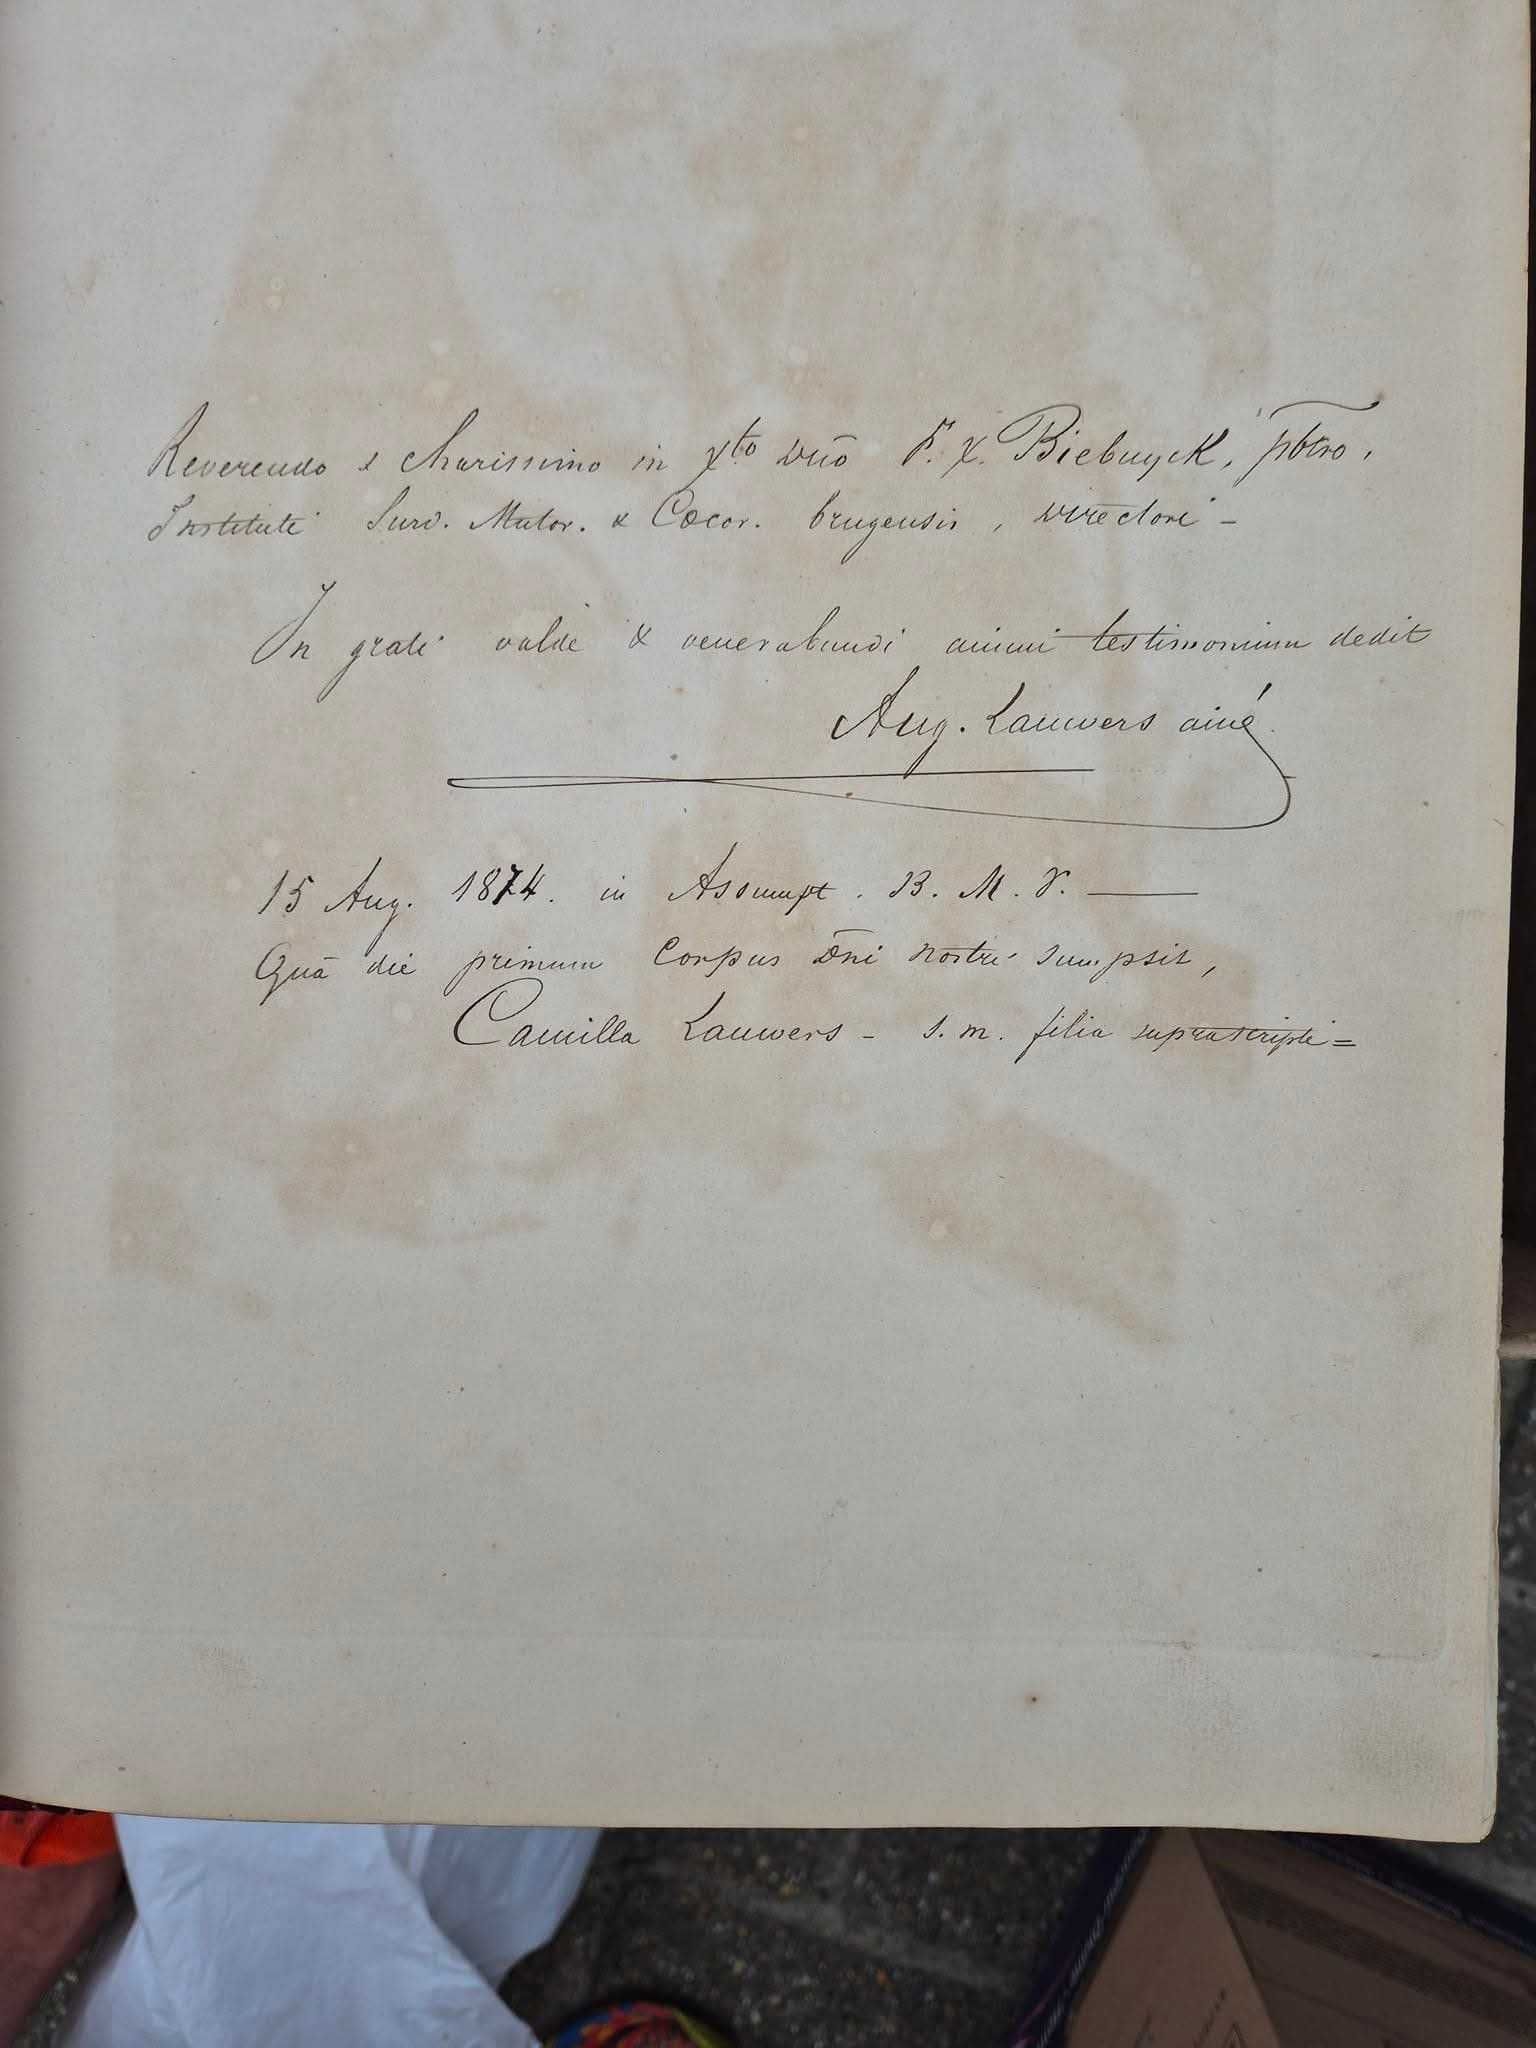 Reverendo & charissimo in Xto Dno F. X. Biebuyck, pbro,
Instituti Surd. Mutor. & Cœcor. brugensis, directori -
In grati valde & venerabundi animi testimonium dedit
Aug. Lauwers ainé.
15 Aug. 1874. in Assumpt. B. M. V. —
Quā die primum Corpus Dni nostri sumpsit,
Camilla Lauwers - s. m. filia suprascripti =